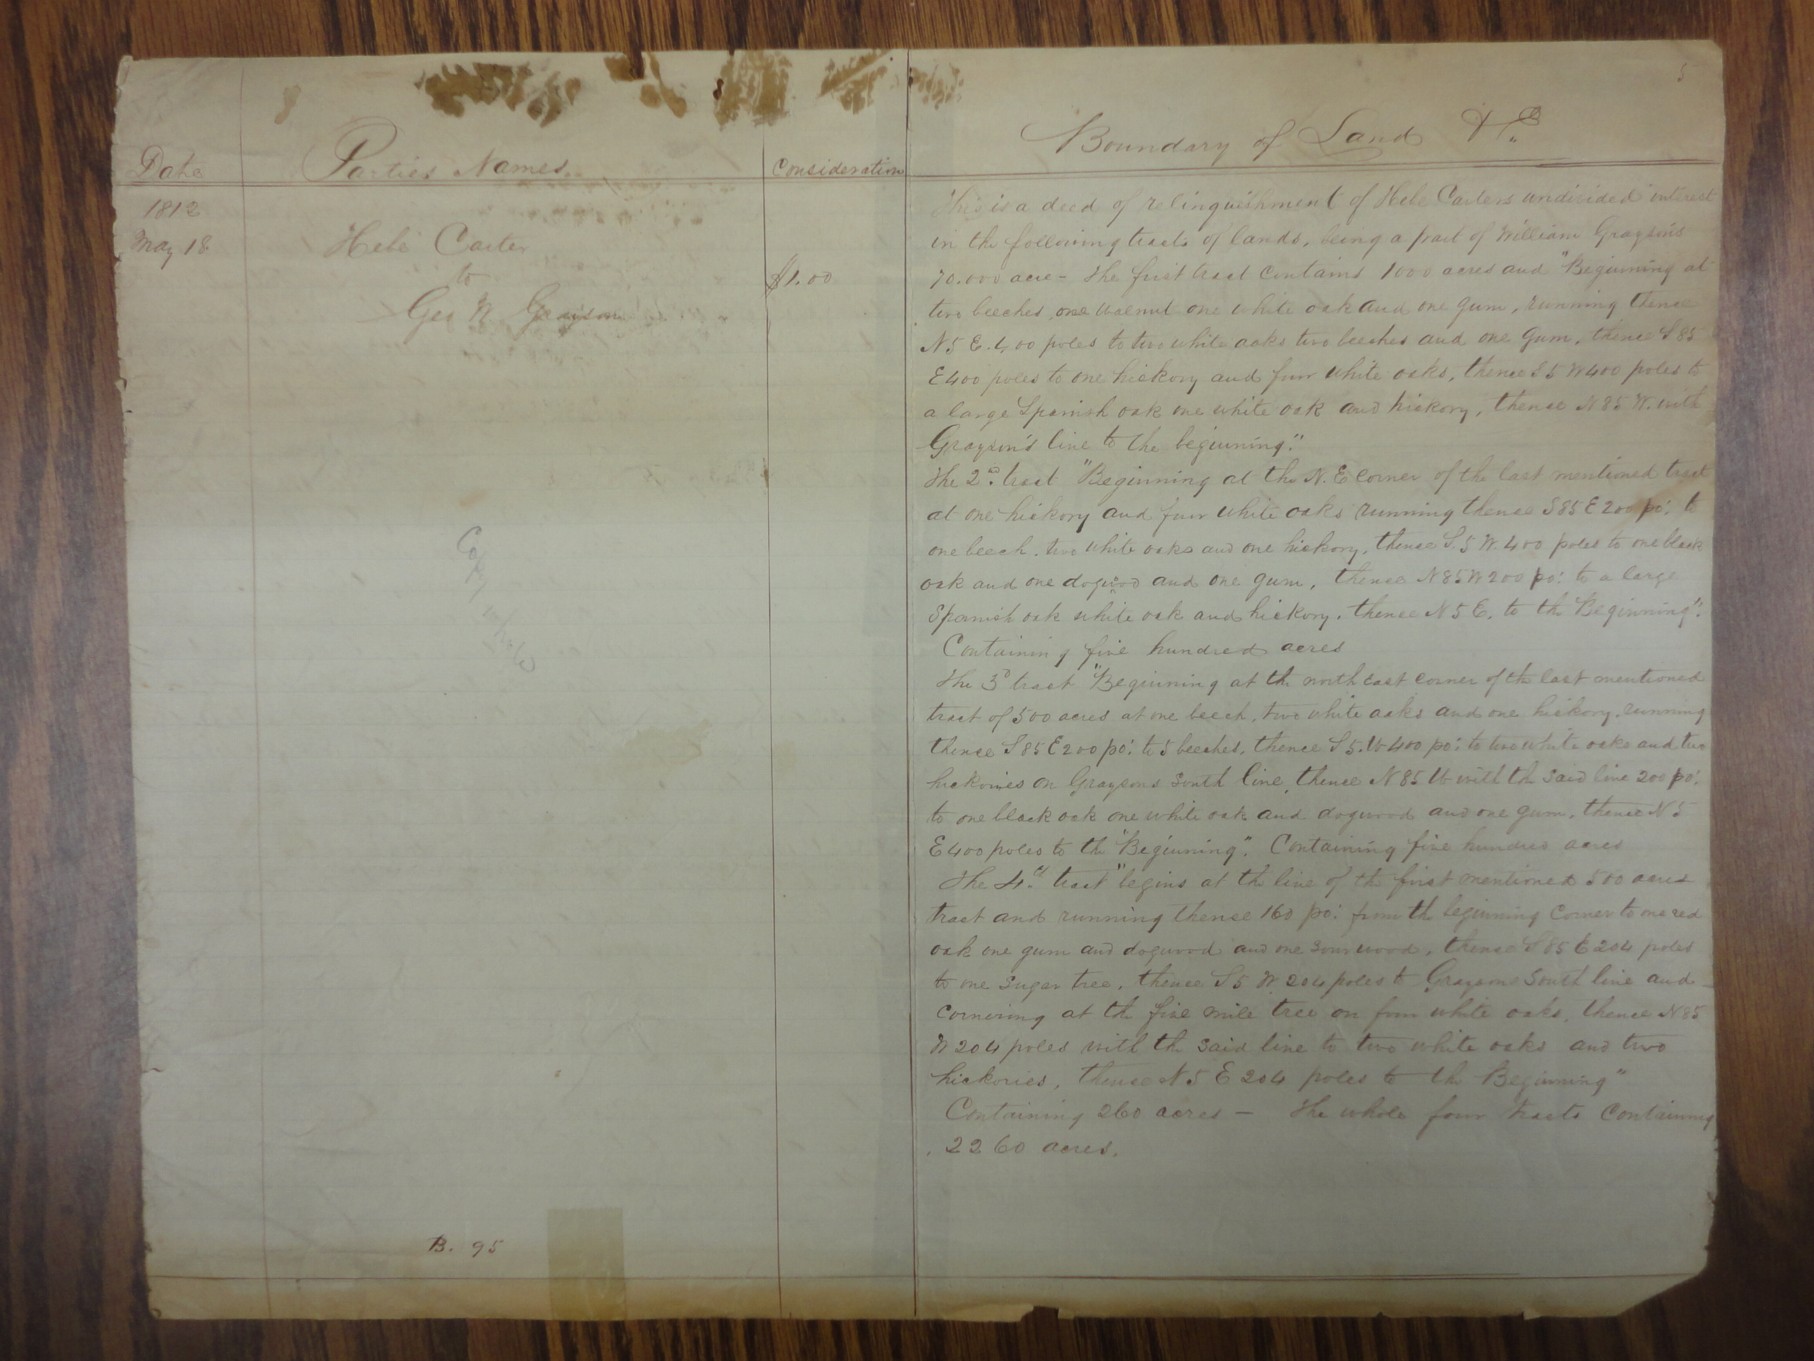 5
Date
Parties Names.
Consideration
Boundary of Land &c
1812
May 18
Hebe Carter
to
Geo W Grayson
$1.00
This is a deed of relinquishment of Hebe Carters undivided interest
in the following tracts of lands, being a part of William Grayson's
70.000 acre - The first tract contains 1000 acres and "Beginning at
two beeches one walnut one white oak and one gum, running thence
N 5 E. 400 poles to two white oaks two beeches and one gum, thence S 85
E 400 poles to one hickory and four white oaks, thence S 5 W 400 poles to
a large Spanish oak one white oak and hickory, thence N 85 W. with
Grayson's line to the beginning".
The 2d tract "Beginning at the N. E corner of the last mentioned tract
at one hickory and four white oaks running thence S 85 E 200 po: to
one beech. two white oaks and one hickory, thence S. 5 W. 400 poles to one black
oak and one dogwood and one gum, thence N 85 W 200 po: to a large
Spanish oak white oak and hickory. thence N 5 E. to the "Beginning".
Containing five hundred acres
The 3d tract "Beginning at the north east corner of the last mentioned
tract of 500 acres at one beech, two white oaks and one hickory, running
thence S 85 E 200 po: to 5 beeches, thence S 5. W 400 po: to two white oaks and two
hickories on Graysons South line, thence N 85 W with the said line 200 po:
to one black oak one white oak and dogwood and one gum, thence N 5
E 400 poles to the "Beginning". Containing five hundred acres
The 4th tract "begins at the line of the first mentioned 500 acres
tract and running thence 160 po: from the beginning corner to one red
oak one gum and dogwood and one sour wood, thence S 85 E 204 poles
to one sugar tree, thence S 5 W. 204 poles to Graysons South line and
cornering at the five mile tree on four white oaks, thence N 85
W 204 poles with the said line to two white oaks and two
hickories, thence N 5 E 204 poles to the Beginning"
Containing 260 acres - The whole four tracts containing
2260 acres.
B. 95